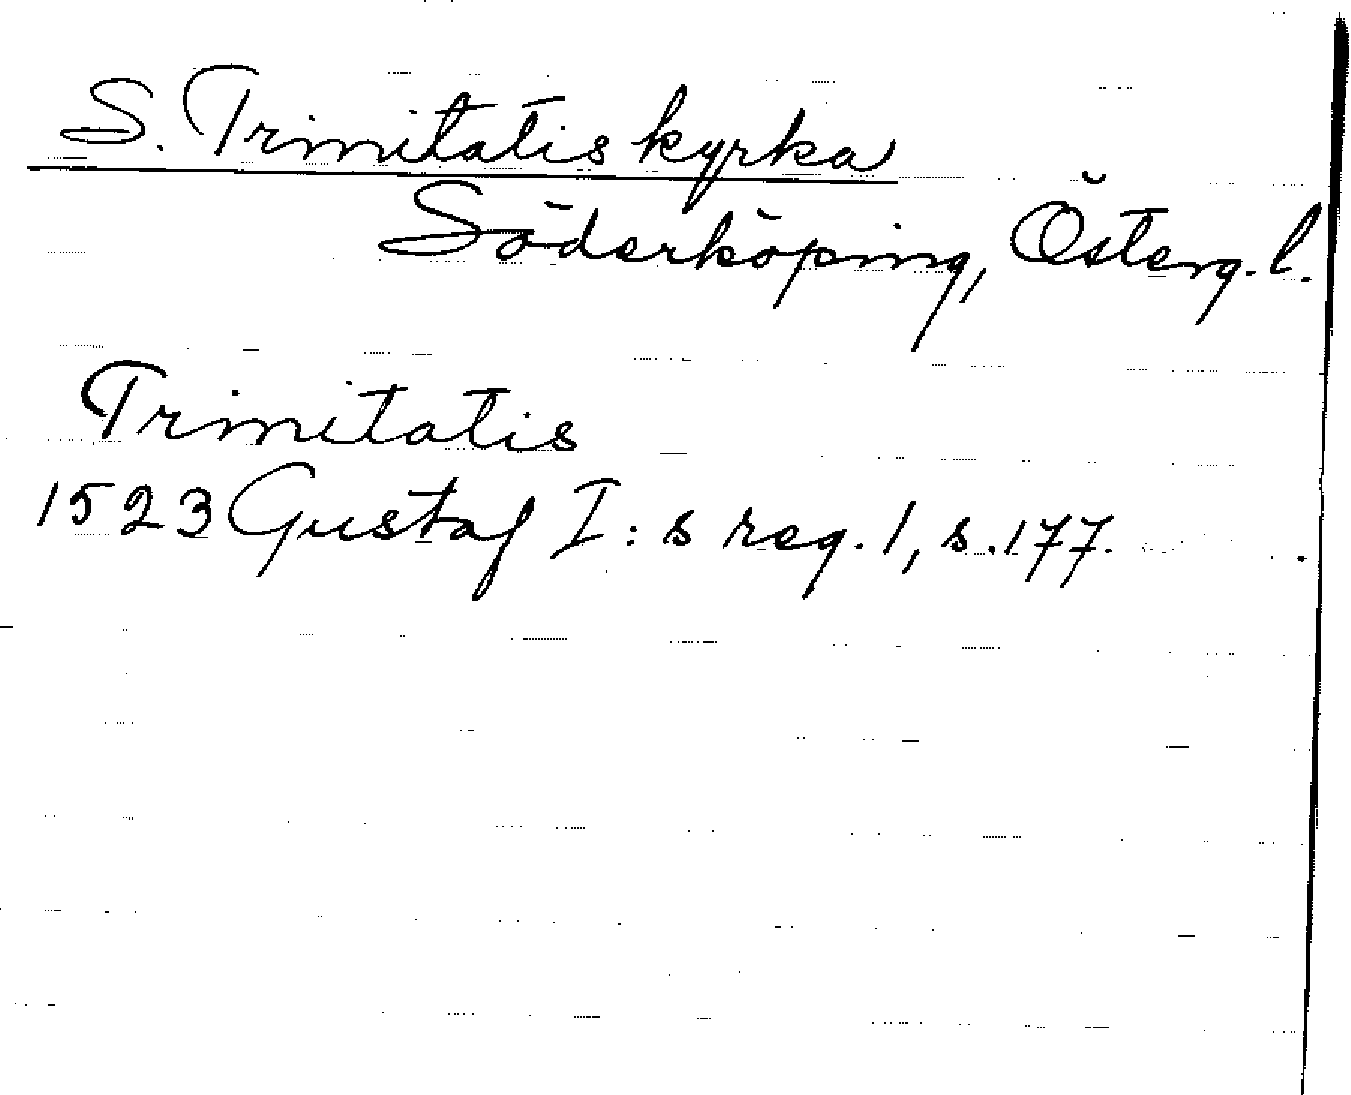 S. Trinitatis kyrka
Söderköping, Österg. l.
Trinitatis
1523 Gustaf I:s reg. 1, s. 177.